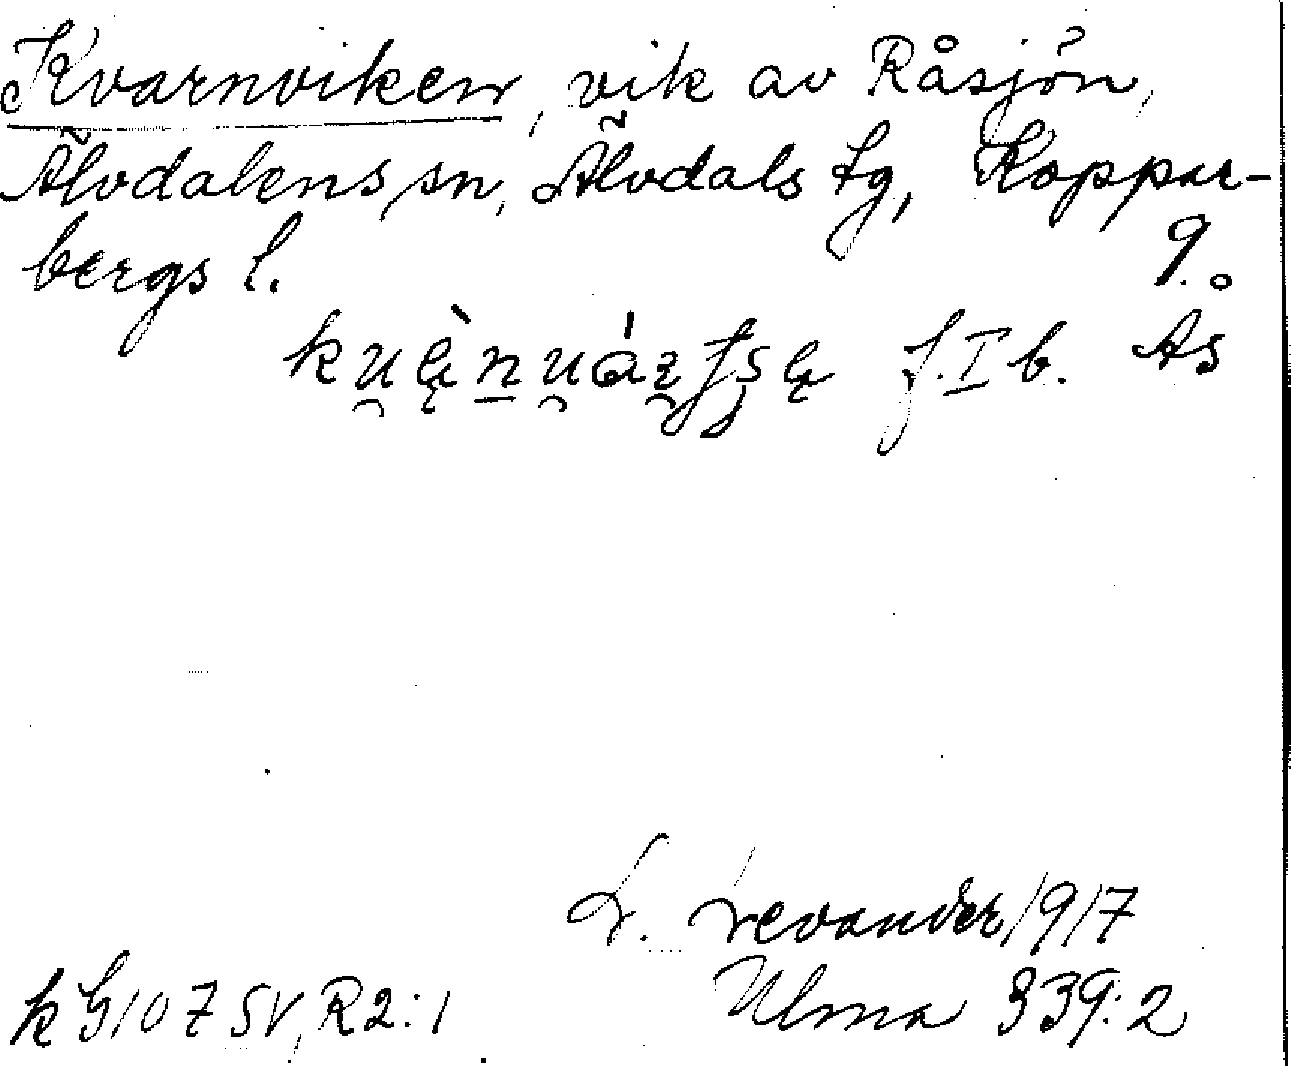 Kvarnviken, vik av Råsjön,
Älvdalens sn, Älvdals tg, Koppar-
bergs l. 9.
f. I b. Ås
L. Levander 1917
k G 107 SV, R2:1 Ulma 339:2